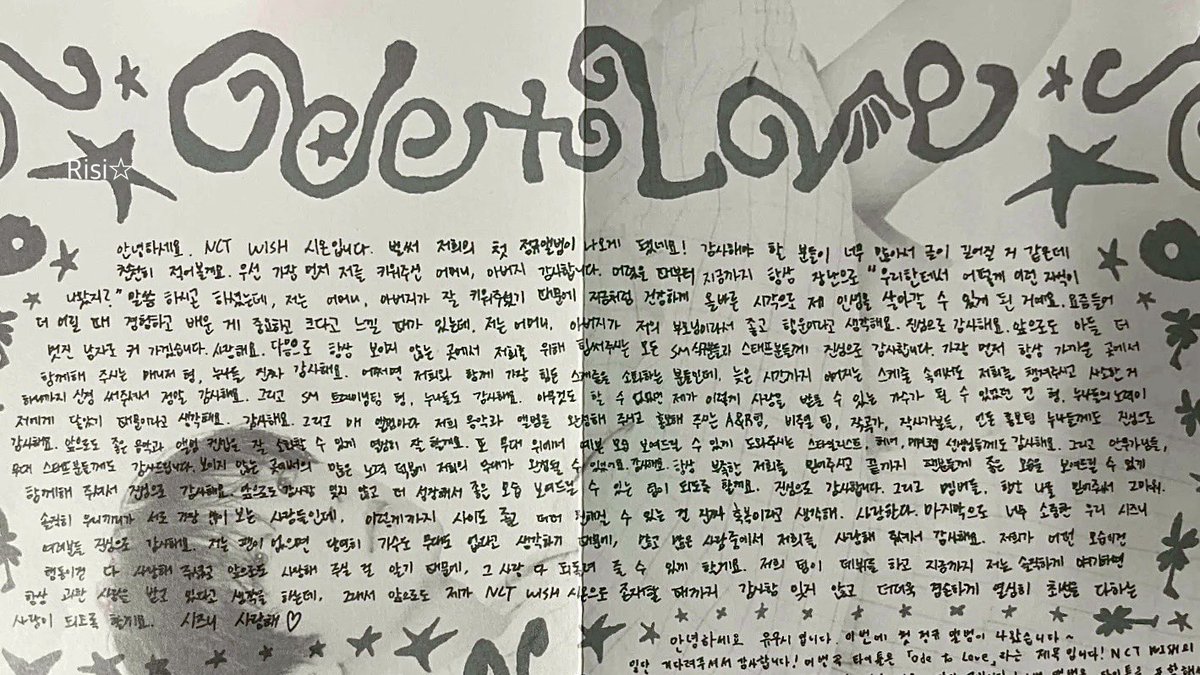 Ode to Love
Risi☆
안녕하세요. NCT WISH 시온입니다. 벌써 저희의 첫 정규앨범이 나오게 됐네요! 감사해야 할 분들이 너무 많아서 글이 길어질 거 같은데
천천히 적어볼게요. 우선 가장 먼저 저를 키워주신 어머니, 아버지 감사합니다. 어렸을 때부터 지금까지 항상 장난으로 "우리한테서 어떻게 이런 자식이
나왔지?" 말씀 하시곤 하셨는데, 저는 어머니, 아버지가 잘 키워주셨기 때문에 지금처럼 건강하게 올바른 시각으로 제 인생을 살아갈 수 있게 된 거예요. 요즘들어
더 어릴 때 경험하고 배운 게 중요하고 크다고 느낄 때가 있는데, 저는 어머니, 아버지가 저의 부모님이라서 좋고 행운이라고 생각해요. 진심으로 감사해요. 앞으로도 아들 더
멋진 남자로 커 가겠습니다. 사랑해요. 다음으로 항상 보이지 않는 곳에서 저희를 위해 힘써주시는 모든 SM 식구분들과 스태프분들께 진심으로 감사합니다. 가장 먼저 항상 가까운 곳에서
함께해 주시는 매니저 형, 누나들 진짜 감사해요. 어쩌면 저희와 함께 가장 힘든 스케줄을 소화하는 분들인데, 늦은 시간까지 이어지는 스케줄 속에서도 저희를 챙겨주시고 사소한 거
하나까지 신경 써주셔서 정말 감사해요. 그리고 SM 트레이닝팀 형, 누나들도 감사해요. 아무것도 할 수 없었던 제가 이렇게 사랑을 받을 수 있는 가수가 될 수 있었던 건 형, 누나들의 노력이
저에게 닿았기 때문이라고 생각해요. 감사해요. 그리고 매 앨범마다 저희 음악과 앨범을 완성해 주시고 표현해 주는 A&R팀, 비주얼 팀, 작곡가, 작사가분들, 언론 홍보팀 누나들께도 진심으로
감사해요. 앞으로도 좋은 음악과 앨범 컨셉을 잘 소화할 수 있게 열심히 잘 할게요. 또 무대 위에서 예쁜 모습 보여드릴 수 있게 도와주시는 스타일리스트, 헤어, 메이크업 선생님들께도 감사해요. 그리고 안무가님들,
무대 스태프분들께도 감사드립니다. 보이지 않는 곳에서의 많은 노력 덕분에 저희의 무대가 완성될 수 있었어요. 감사해요. 항상 부족한 저희를 믿어주시고 끝까지 팬분들께 좋은 모습을 보여드릴 수 있게
함께해 주셔서 진심으로 감사해요. 앞으로도 감사함 잊지 않고 더 성장해서 좋은 모습 보여드릴 수 있는 팀이 되도록 할게요. 진심으로 감사합니다. 그리고 멤버들, 항상 나를 믿어줘서 고마워.
솔직히 우리끼리가 서로 가장 많이 보는 사람들인데, 이렇게까지 사이도 좋고 더더 친해질 수 있는 건 진짜 축복이라고 생각해. 사랑한다. 마지막으로 너무 소중한 우리 시즈니
여러분들 진심으로 감사해요. 저는 팬이 없으면 당연히 가수도 무대도 없다고 생각하기 때문에, 많고 많은 사람중에서 저희를 사랑해 줘서 감사해요. 저희가 어떤 모습이건
행동이건 다 사랑해 주시고 앞으로도 사랑해 주실 걸 알기 때문에, 그 사랑 다 되돌려 줄 수 있게 할게요. 저희 팀이 데뷔를 하고 지금까지 저는 솔직하게 얘기하면
항상 과분한 사랑을 받고 있다고 생각을 하는데, 그래서 앞으로도 제가 NCT WISH 시온으로 존재할 때까지 감사함 잊지 않고 더더욱 겸손하게 열심히 최선을 다하는
사람이 되도록 할게요. 시즈니 사랑해♡
안녕하세요 유우시 입니다. 이번에 첫 정규 앨범이 나왔습니다~
일단 기다려주셔서 감사합니다! 이번 곡 타이틀은 「Ode to Love」라는 제목 입니다! NCT WISH의